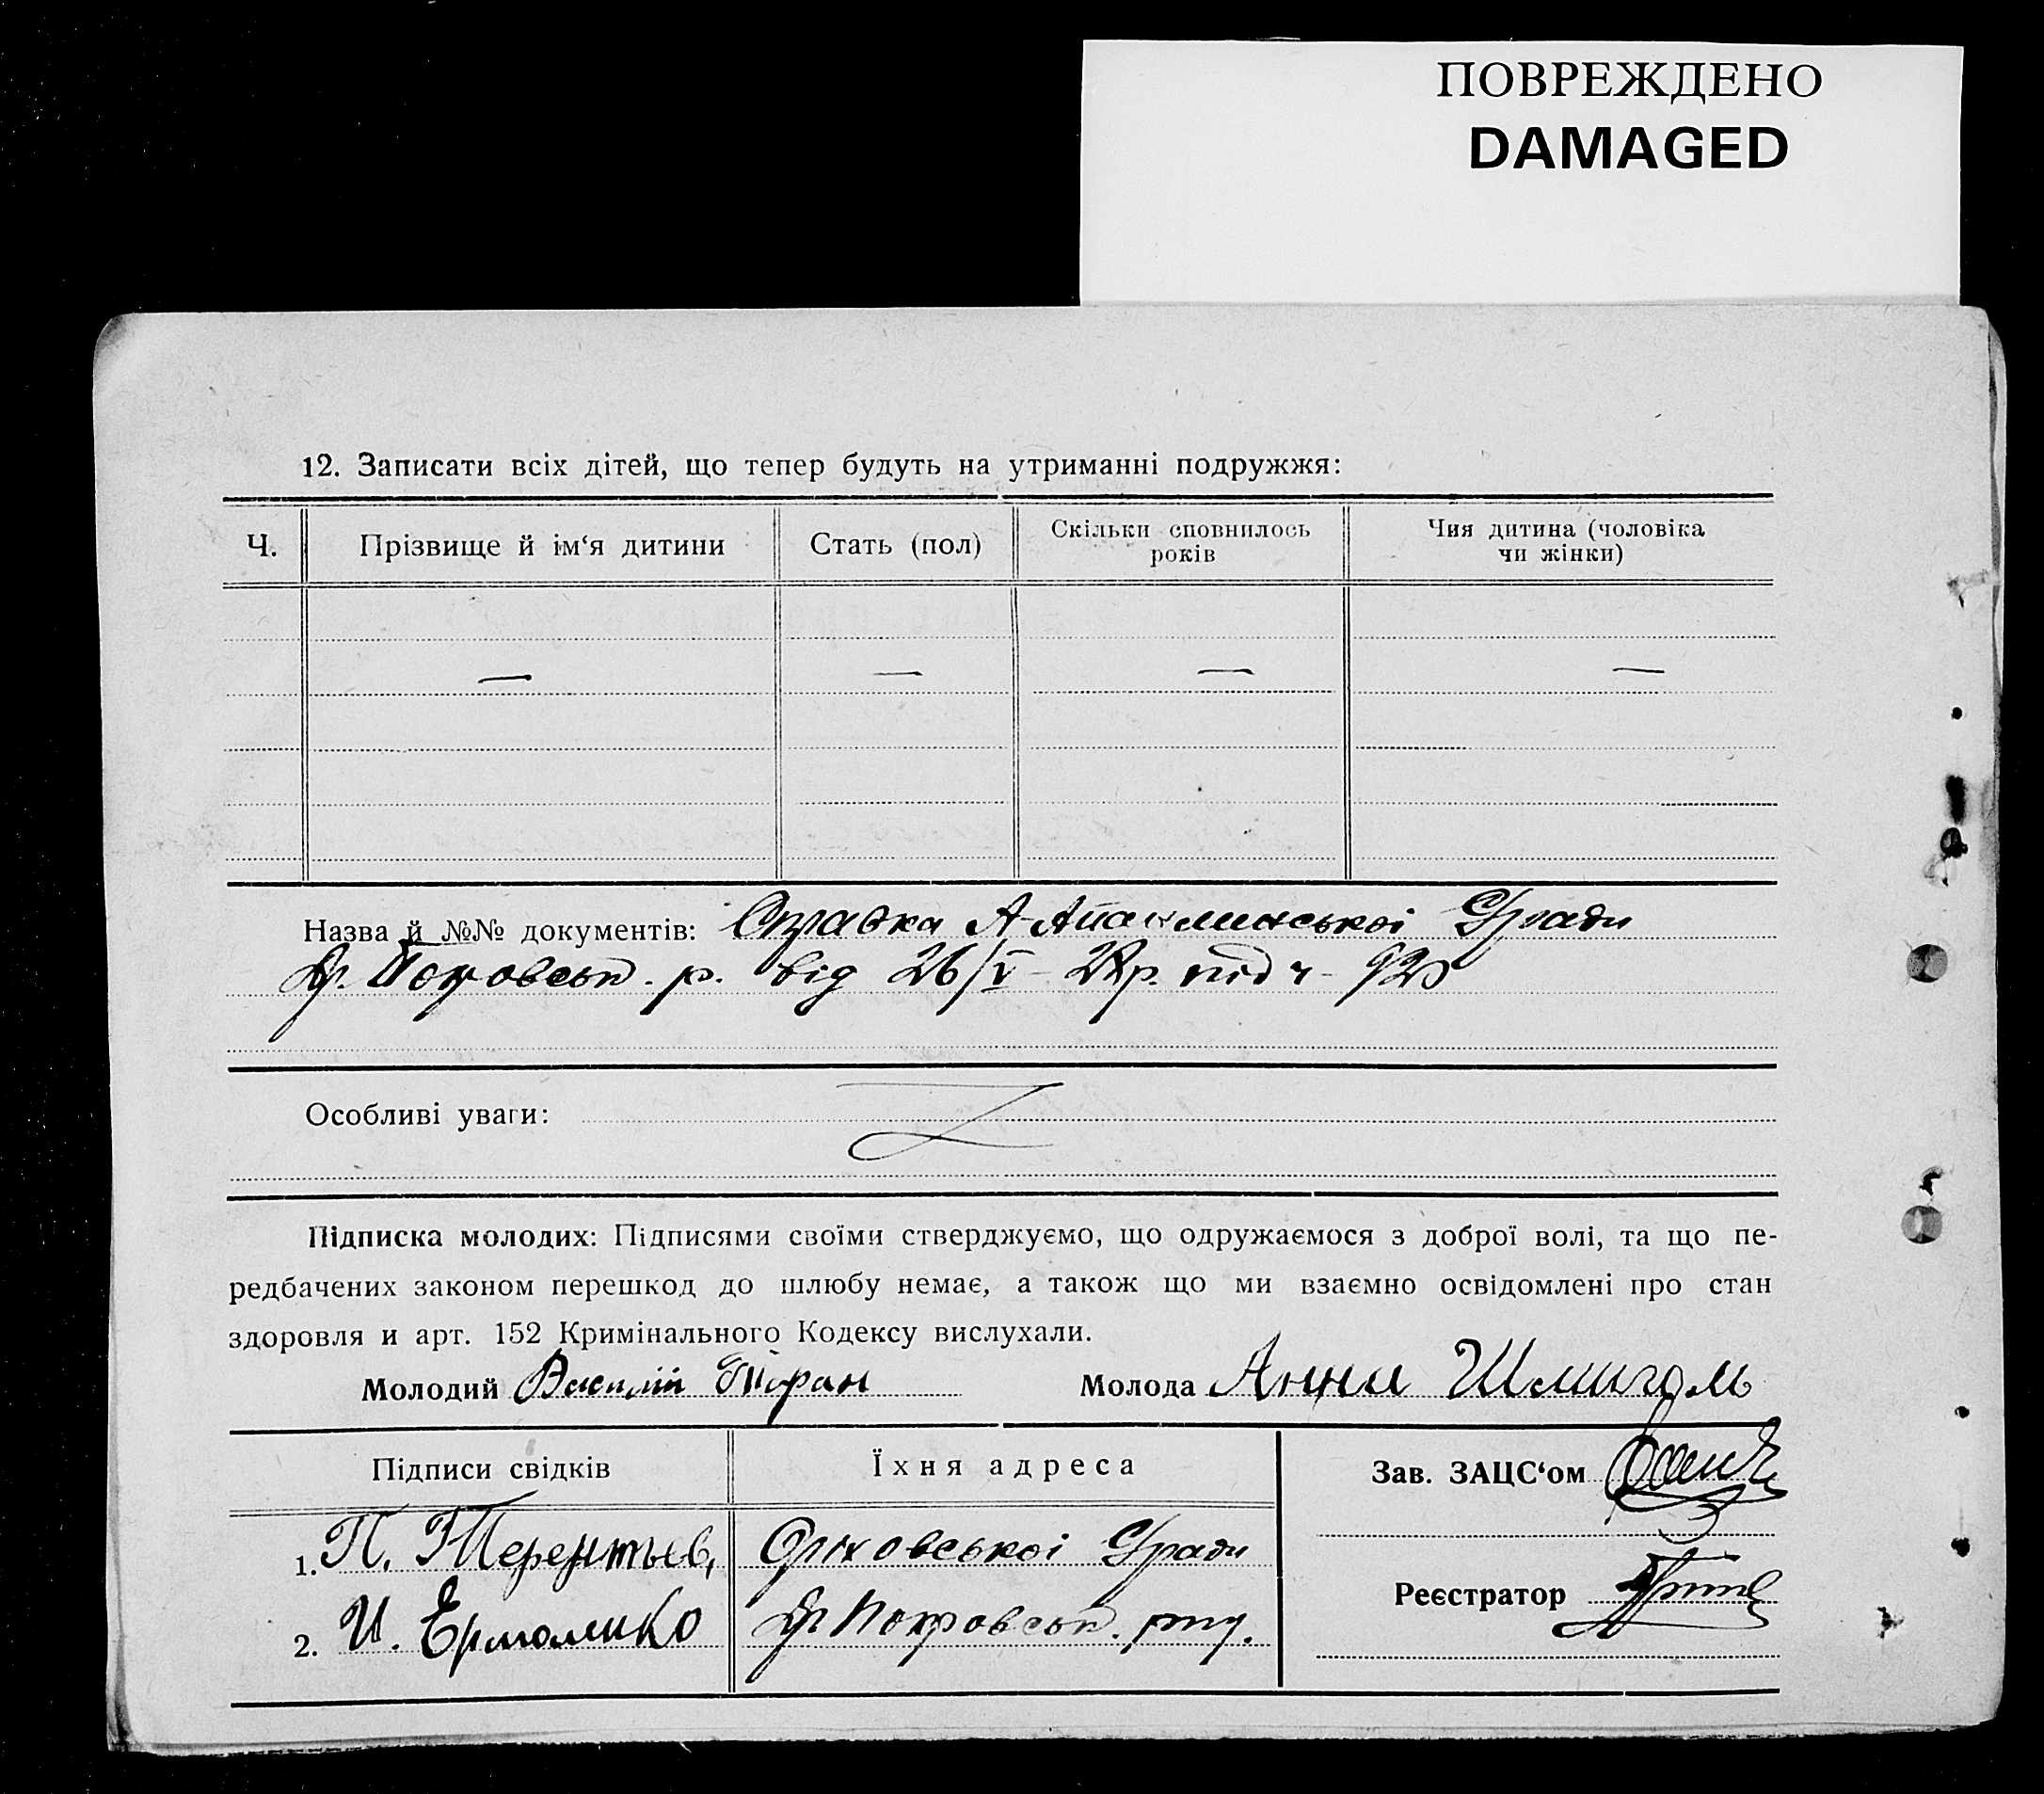 ПОВРЕЖДЕНО
DAMAGED
12. Записати всіх дітей, що тепер будуть на утриманні подружжя:
Ч. Прізвище й ім‘я дитини Стать (пол) Скільки сповнилось років Чия дитина (чоловіка чи жінки)
— — — —
Назва й №№ документів: Справка С/ради
Покровськ. р. від 26/V під ч.
Особливі уваги:
Підписка молодих: Підписями своїми стверджуємо, що одружаємося з доброї волі, та що пе-
редбачених законом перешкод до шлюбу немає, а також що ми взаємно освідомлені про стан
здоровля и арт. 152 Кримінального Кодексу вислухали.
Молодий Василій Молода Анна Шмиголь
Підписи свідків Їхня адреса Зав. ЗАЦС‘ом
1. П. Терентьев, Оріховської С/ради
Реєстратор
2. И. Ермоленко Покровськ.